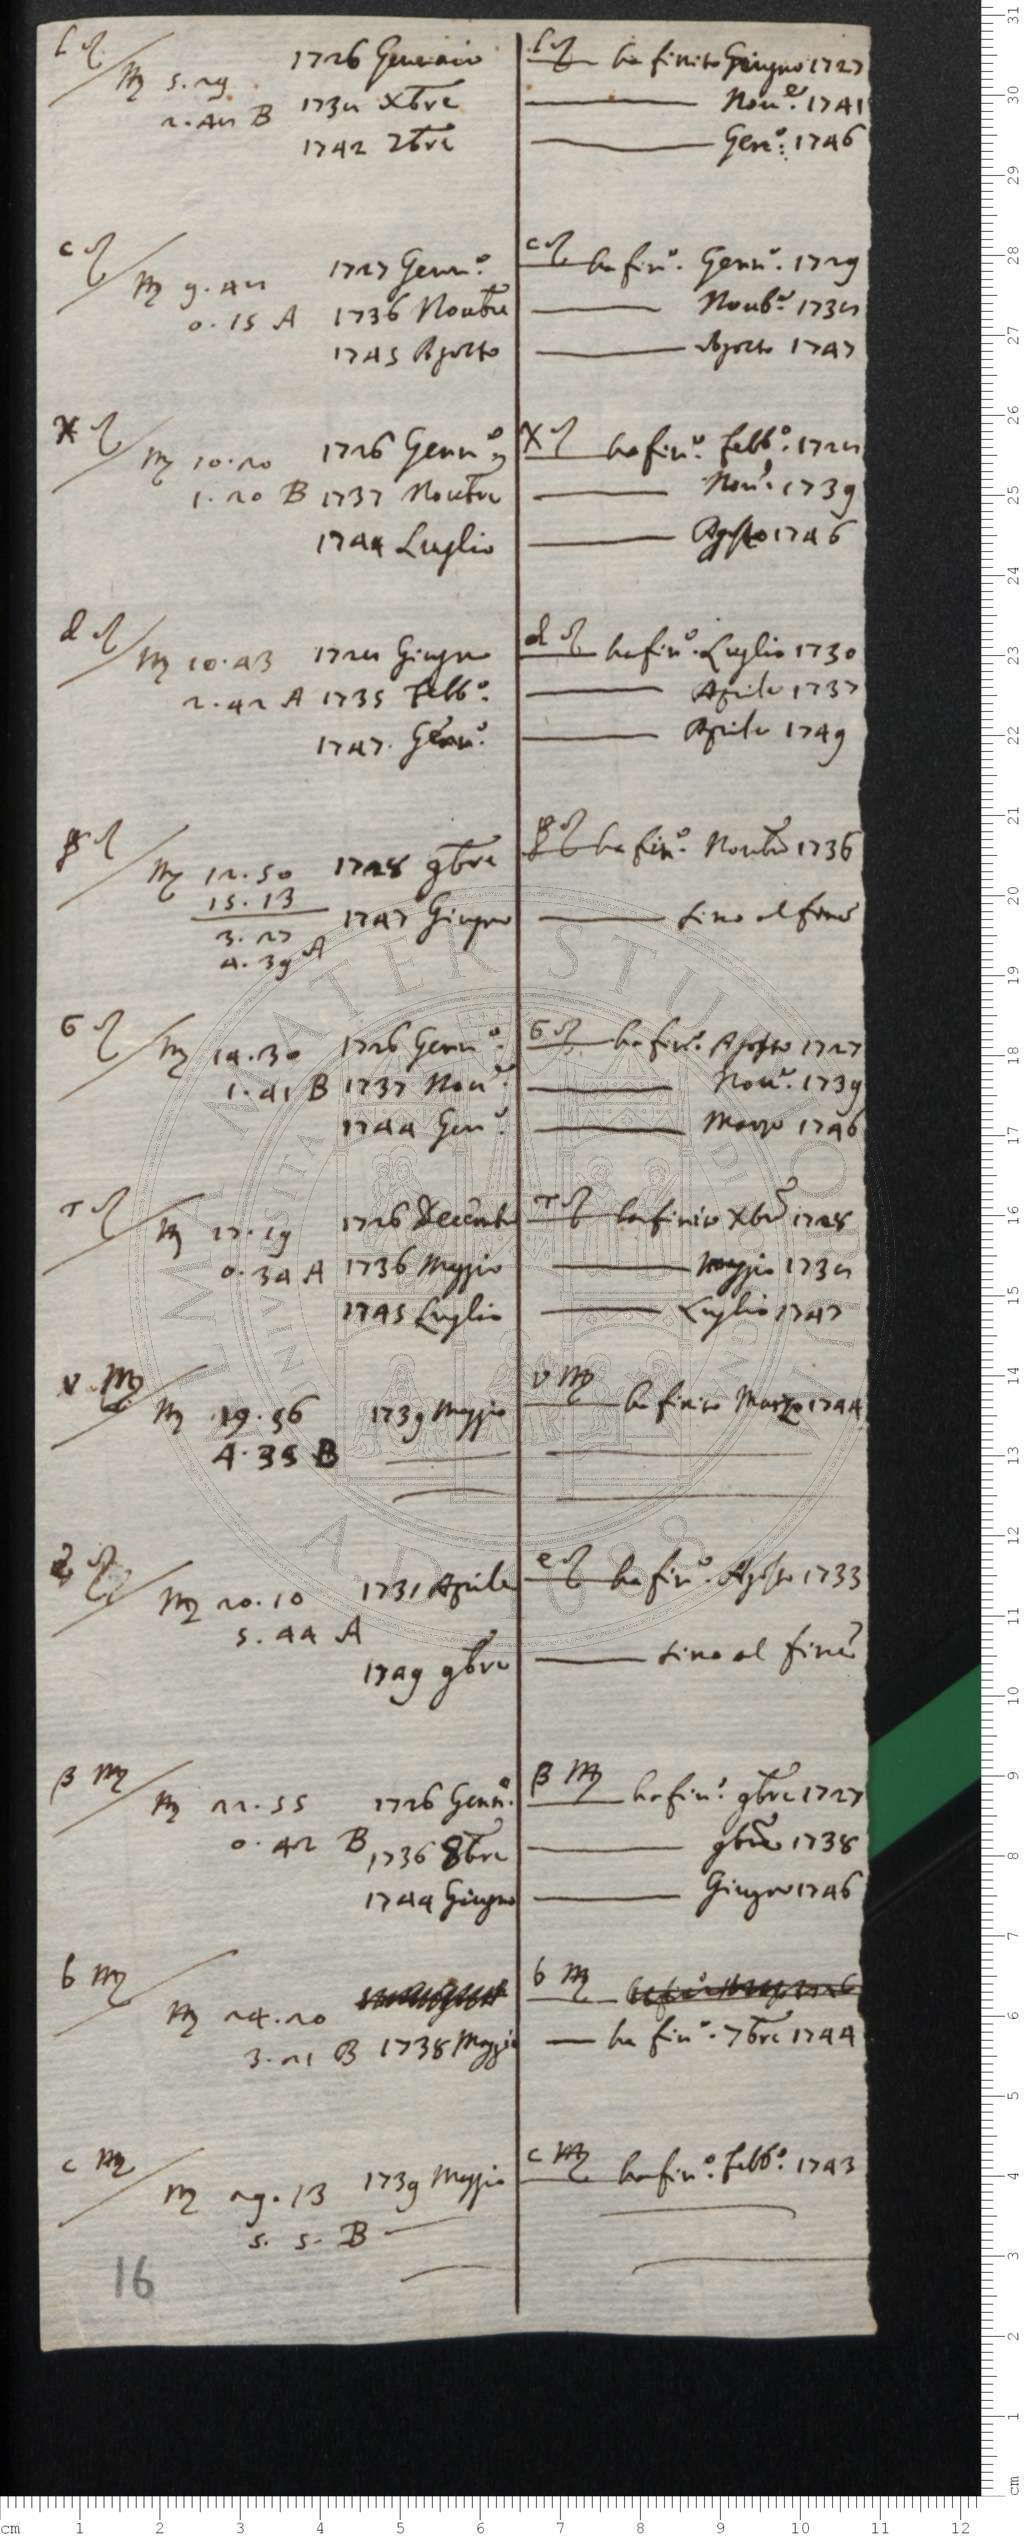 l ♌ 1726 Gennaio l ♌ ha finito Giugno 1727
♍ 5. 29 1732 Xbre Nou.e 1741
2. 42 B 1742 7bre Gen.o: 1746
c ♌ 1727 Genn.o c ♌ ha fin.o. Genn.o. 1729
♍ 9. 42
0. 15 A 1736 Noubre Noub.e 1732
1745 Agosto Agosto 1747
X ♌ 1726 Genn.o X ♌ ha fin.o Febb.o. 1722
♍ 10. 20
1. 20 B 1737 Noubre Nou.e 1739
1744 Luglio Agosto 1746
d ♌ d ♌ ha fin.o. Luglio 1730
♍ 10. 43 Giugno
2. 42 A 1735 Febb.o. Aprile 1737
1747. Genn.o Aprile 1749
♌ ♌ ha fin.o Noubre 1736
♍ 12. 50 1728 9bre
15. 13 1747 Giugno sino al fine
3. 27
4. 39 A
σ ♌ 1726 Genn.o. σ ♌ ha fin.o. Agosto 1727
♍ 14. 30
1. 41 B 1737 Nou.e Nou.e. 1739
1744 Gen.o Marzo 1746
τ ♌ 1726 Decemb τ ♌ ha finito Xbre 1728
♍ 17. 19
0. 34 A 1736 Maggio Maggio
1745 Luglio Luglio 1747
υ ♍ υ ♍ ha finito Marzo 1744
♍ 19. 56 1739 Maggio
4. 35 B
♌ 1731 Aprile e ♌ ha fin.o. Agosto 1733
♍ 20. 10
5. 44 A
1749 9bre sino al fine
β ♍ 1726 Genn.o. β ♍ ha fin.o. 9bre 1727
♍ 22. 55
0. 42 B 1736 8bre 9bre 1738
1744 Giugno Giugno 1746
b ♍ b ♍
♍ 24. 20
3. 21 B 1738 Maggio ha fin.o. 7bre 1744
c ♍ 1739 Maggio c ♍ ha fin.o. Febb.o. 1743
♍ 29. 13
5. 5. B
16
ALMA MATER STUDIORUM
UNIVERSITA
A.D. 1088